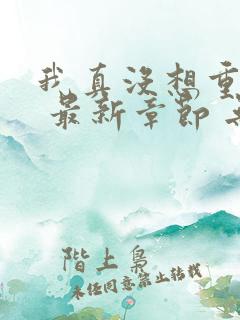 我真没想重
最新章节
階上梟
未经同意禁止转载